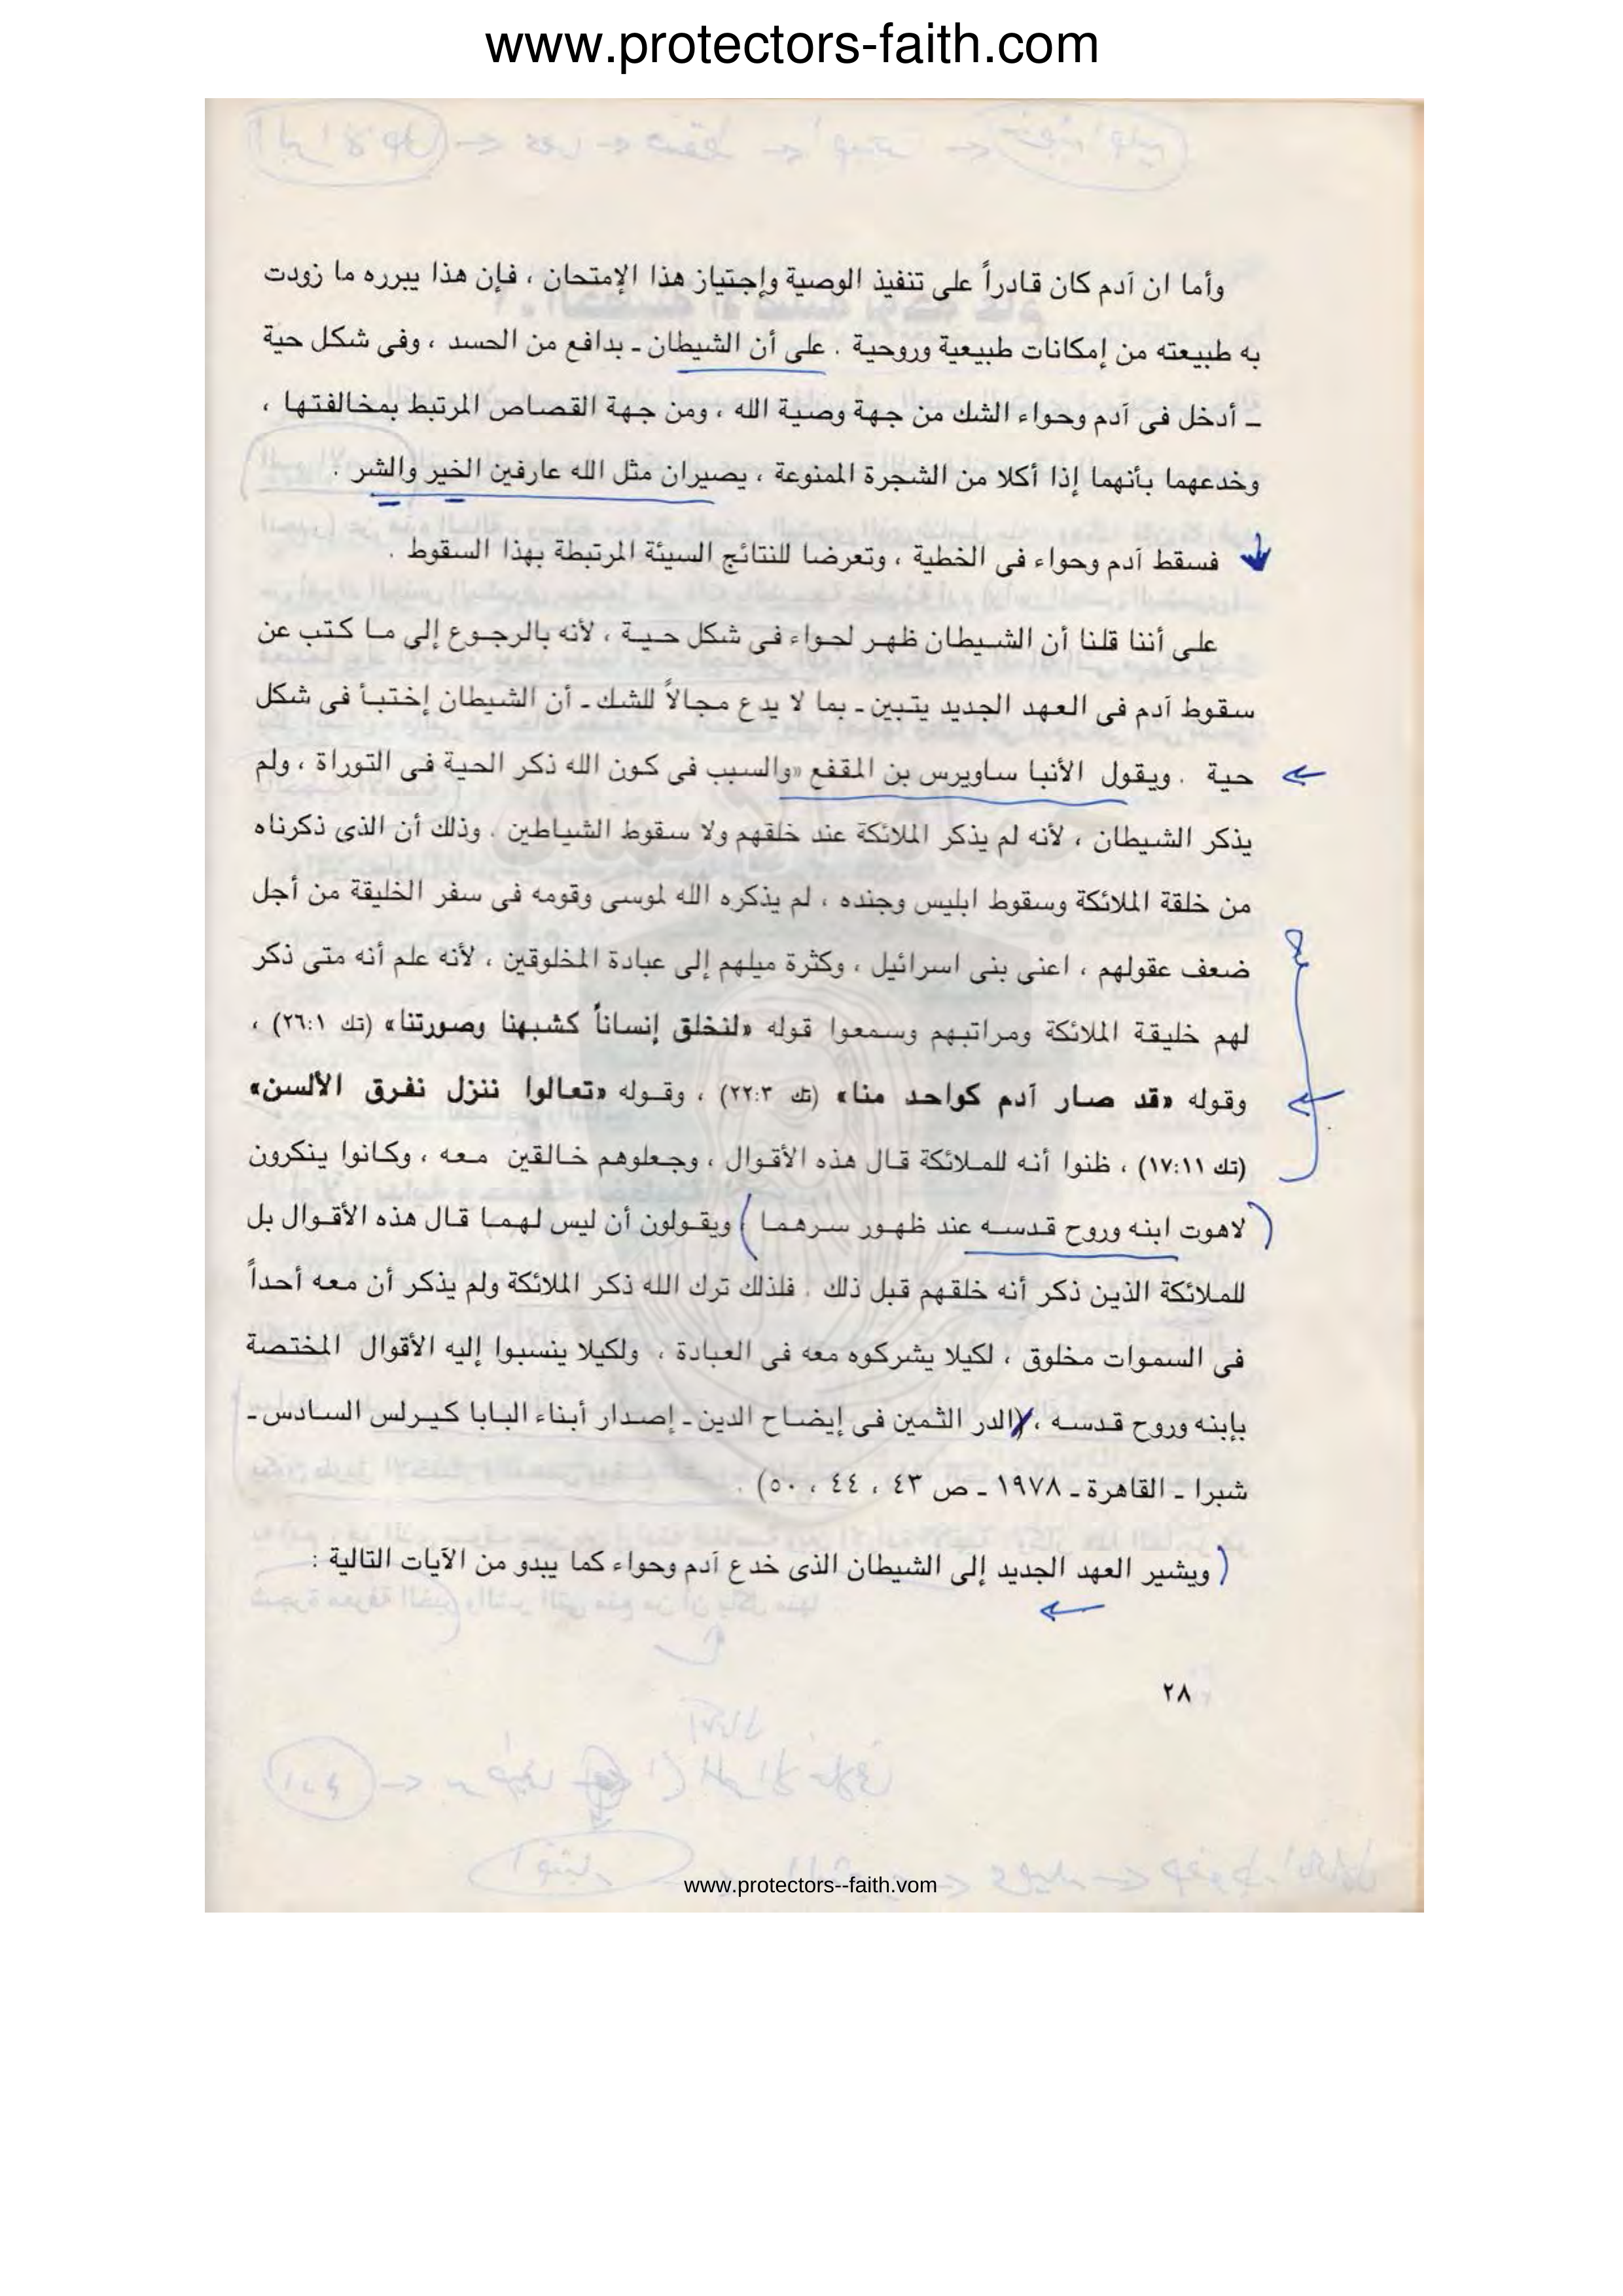 www.protectors-faith.com
وأما ان آدم كان قادراً على تنفيذ الوصية وإجتياز هذا الإمتحان ، فإن هذا يبرره ما زودت
به طبيعته من إمكانات طبيعية وروحية . على أن الشيطان ـ بدافع من الحسد ، وفى شكل حية
ـ أدخل فى آدم وحواء الشك من جهة وصية الله ، ومن جهة القصاص المرتبط بمخالفتها ،
وخدعهما بأنهما إذا أكلا من الشجرة الممنوعة ، يصيران مثل الله عارفين الخير والشر .
فسقط آدم وحواء فى الخطية ، وتعرضا للنتائج السيئة المرتبطة بهذا السقوط .
على أننا قلنا أن الشيطان ظهر لحواء فى شكل حية ، لأنه بالرجوع إلى ما كتب عن
سقوط آدم فى العهد الجديد يتبين ـ بما لا يدع مجالاً للشك ـ أن الشيطان إختبأ فى شكل
حية . ويقول الأنبا ساويرس بن المقفع «والسبب فى كون الله ذكر الحية فى التوراة ، ولم
يذكر الشيطان ، لأنه لم يذكر الملائكة عند خلقهم ولا سقوط الشياطين . وذلك أن الذى ذكرناه
من خلقة الملائكة وسقوط ابليس وجنده ، لم يذكره الله لموسى وقومه فى سفر الخليقة من أجل
ضعف عقولهم ، اعنى بنى اسرائيل ، وكثرة ميلهم إلى عبادة المخلوقين ، لأنه علم أنه متى ذكر
لهم خليقة الملائكة ومراتبهم وسمعوا قوله «لنخلق إنساناً كشبهنا وصورتنا» (تك ٢٦:١) ،
وقوله «قد صار آدم كواحد منا» (تك ٢٢:٣) ، وقوله «تعالوا ننزل نفرق الألسن»
(تك ١٧:١١) ، ظنوا أنه للملائكة قال هذه الأقوال ، وجعلوهم خالقين معه ، وكانوا ينكرون
لاهوت ابنه وروح قدسه عند ظهور سرهما ) ويقولون أن ليس لهما قال هذه الأقوال بل
للملائكة الذين ذكر أنه خلقهم قبل ذلك . فلذلك ترك الله ذكر الملائكة ولم يذكر أن معه أحداً
فى السموات مخلوق ، لكيلا يشركوه معه فى العبادة ، ولكيلا ينسبوا إليه الأقوال المختصة
بإبنه وروح قدسه ، (الدر الثمين فى إيضاح الدين ـ إصدار أبناء البابا كيرلس السادس ـ
شبرا ـ القاهرة ـ ١٩٧٨ ـ ص ٤٣ ، ٤٤ ، ٥٠) .
ويشير العهد الجديد إلى الشيطان الذى خدع آدم وحواء كما يبدو من الآيات التالية :
٢٨
www.protectors--faith.vom